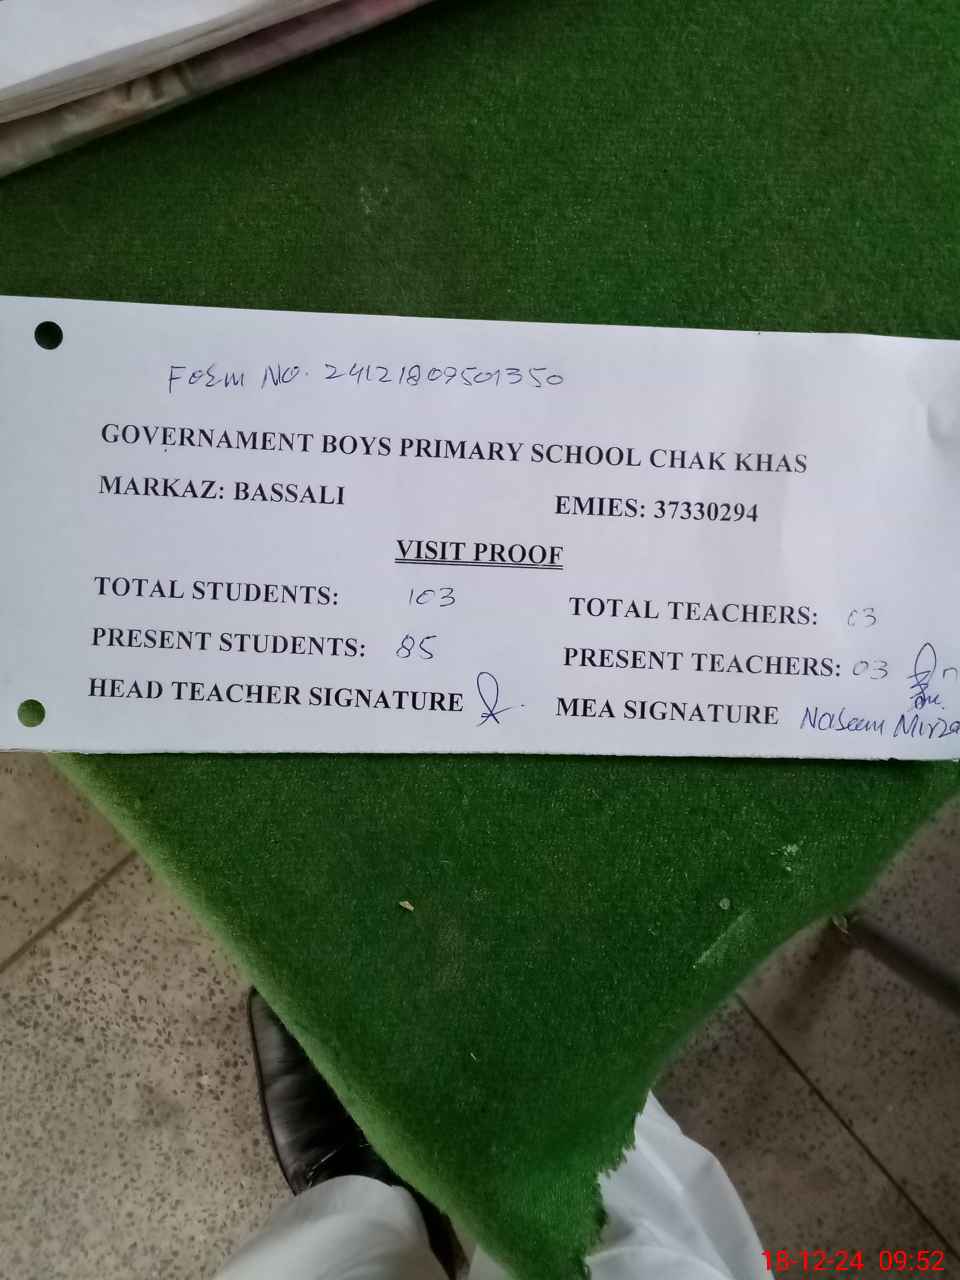 Form No. 24121809501350
GOVERNAMENT BOYS PRIMARY SCHOOL CHAK KHAS
MARKAZ: BASSALI EMIES: 37330294
VISIT PROOF
TOTAL STUDENTS: 103 TOTAL TEACHERS: 03
PRESENT STUDENTS: 85 PRESENT TEACHERS: 03
HEAD TEACHER SIGNATURE MEA SIGNATURE Naseem Mirza
18-12-24 09:52